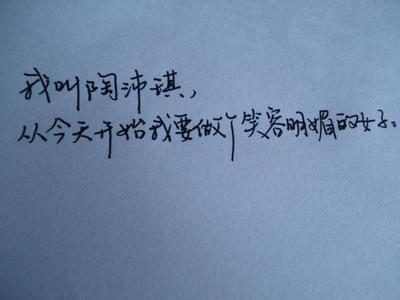 我叫陶沛琪，
从今天开始我要做个笑容明媚的女子。